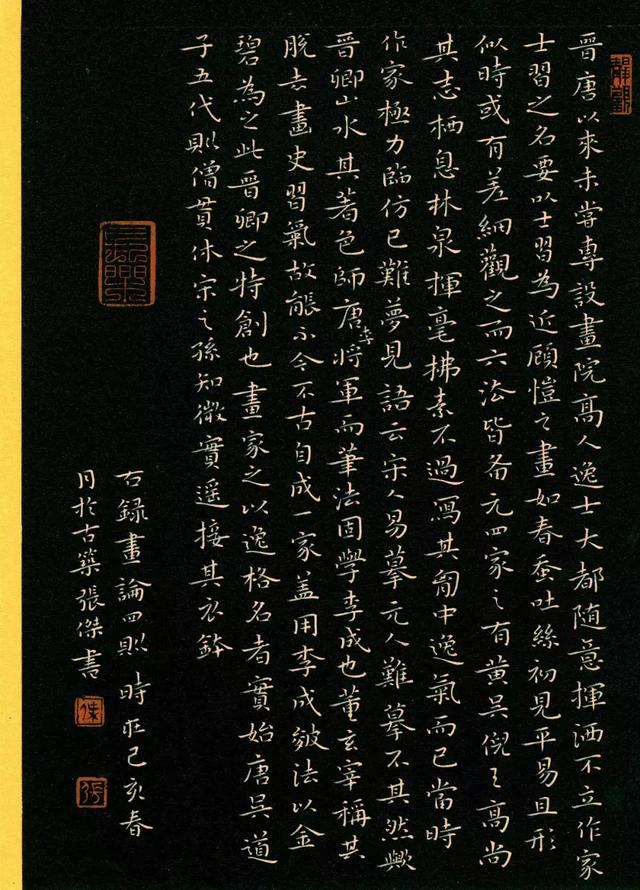 靜觀
晉唐以來未嘗專設畫院高人逸士大都隨意揮洒不立作家
士習之名要以士習為近顧愷之畫如春蚕吐絲初見平易且形
似時或有差細觀之而六法皆备元四家之有黄吴倪王高尚
其志栖息林泉揮毫拂素不過寫其匈中逸氣而已當時
作家極力臨仿已難夢見語云宋人易摹元人難摹不其然歟
晉卿山水其著色師唐李將軍而筆法固學李成也董玄宰稱其
脱去畫史習氣故能不今不古自成一家盖用李成皴法以金
碧為之此晉卿之特創也畫家之以逸格名者實始唐吴道
子五代則僧貫休宗之孫知微實遥接其衣鉢
右録畫論四則 時在己亥春
月於古築張傑書